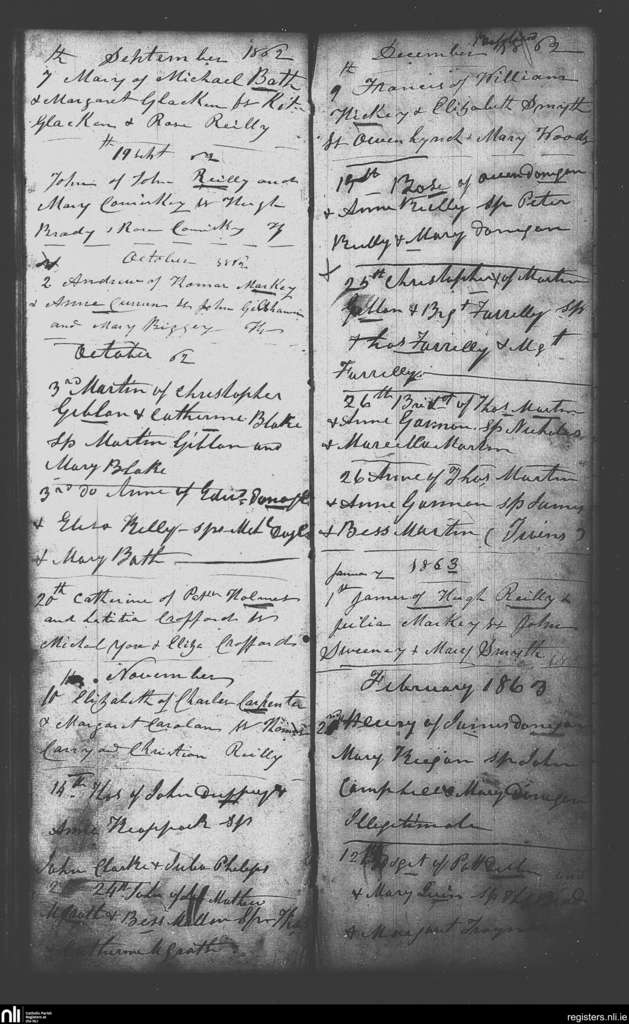 September 1862
7th Mary of Michael Bath
& Margaret Glacken Ss
Glacken & Rose Reilly
19th Sept 62
John of John Reilly and
Mary Comiskey Ss Hugh
Brady & Rose Comisky
October 1862
2 Andrew of Thomas Markey
& Anne Curran Ss John
and Mary
October 62
3rd Martin of Christopher
Giblan & Catherine Blake
Sp Martin Giblan and
Mary Blake
3rd do Anne of Edwd
& Eliza Kelly - sps Mchl
& Mary Bath
20th Catherine of Peter Holmes
and Letitia Crofford Ss
Michal & Eliza Croffords
November
10 Elizabeth of Charles Carpenter
& Margaret Carolan Ss Thomas
Garry and Christian Reilly
14th Thos of John Duffy &
Anne Sp
John Clarke & Julia Phelips
24th John of Mathew
McGrath & Bess Sps Thos
& Catherine McGrath
December 1862
9th Francis of William
Hickey & Elizabeth Smyth
Ss Owen Lynch & Mary Woods
15th Rose of Owen Donegan
& Anne Reilly sp Peter
Reilly & Mary Donegan
25th Christopher of Martin
Giblan & Brgt Farrelly Sp
Thos Farrelly & Mgt
Farrelly
26th Bridt of Thos Martin
& Anne Gannon sp Nicholas
& Marcella Martin
26 Anne of Thos Martin
& Anne Gannon sp James
& Bess Martin (Twins)
January 1863
1st James of Hugh Reilly &
Julia Markey Ss John
Sweeney & Mary Smyth
February 1863
2nd Henry of James Donegan
Mary Keegan sp John
Campbell & Mary Donegan
Illegitimate
12th of Patt
& Mary sp Thos
& Margaret
nli
Catholic Parish
Registers at
the NLI
registers.nli.ie